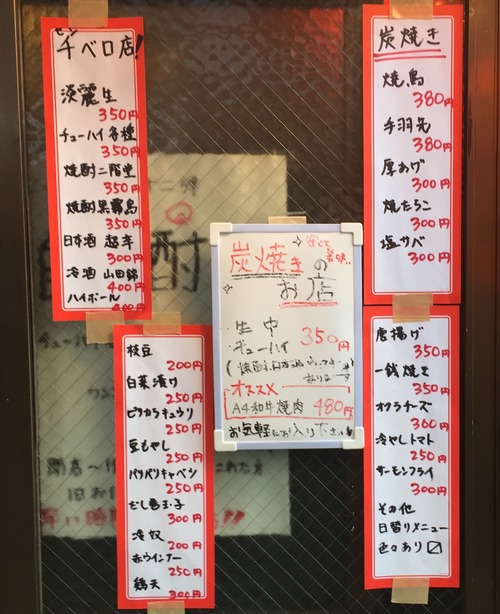 セン
千ベロ店!
淡麗生
350円
チューハイ各種
350円
焼酎二階堂
350円
焼酎黒霧島
350円
日本酒 超辛
300円
冷酒 山田錦
400円
ハイボール
400円
枝豆
200円
白菜漬け
250円
ピリカラキュウリ
250円
豆もやし
250円
パリパリキャベツ
250円
だし巻玉子
300円
冷奴
200円
赤ウインナー
250円
鶏天
300円
安くて
美味い
炭焼きの
お店
生中
チューハイ
350円
オススメ
A4和牛焼肉 480円
お気軽にお入り下さい
炭焼き
焼鳥
380円
手羽先
380円
厚あげ
300円
焼たらこ
300円
塩サバ
300円
唐揚げ
350円
一銭焼き
350円
オクラチーズ
300円
冷やしトマト
250円
サーモンフライ
300円
その他
日替りメニュー
色々あり〼